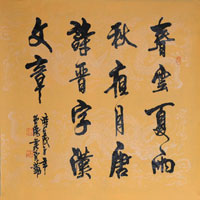 春雲夏雨
秋夜月唐
詩晉字漢
文章